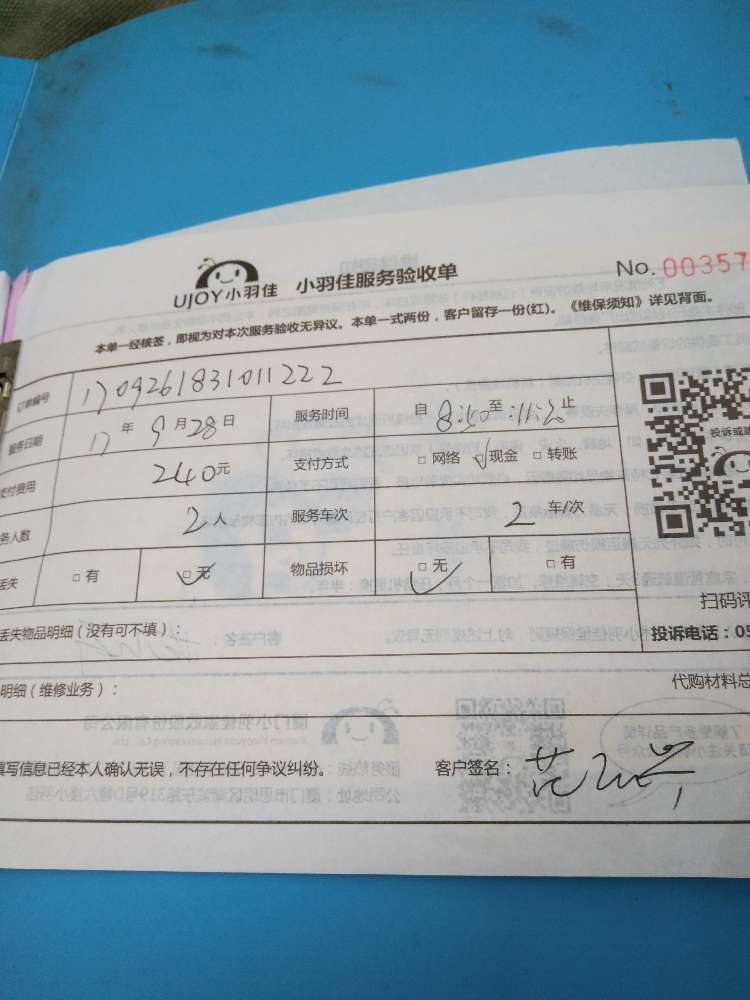 UJOY小羽佳 小羽佳服务验收单 No. 00357
本单一经核签，即视为对本次服务验收无异议。本单一式两份，客户留存一份(红)。《维保须知》详见背面。
订单编号 1709261831011222
服务日期 17年9月28日 服务时间 自 8:50 至 止
支付费用 240元 支付方式 □网络 □现金 □转账
务人数 2人 服务车次 2车/次
丢失 □有 □无 物品损坏 □无 □有
投诉或建
扫码评
丢失物品明细（没有可不填）： 投诉电话：05
明细（维修业务）： 代购材料总
填写信息已经本人确认无误，不存在任何争议纠纷。 客户签名：